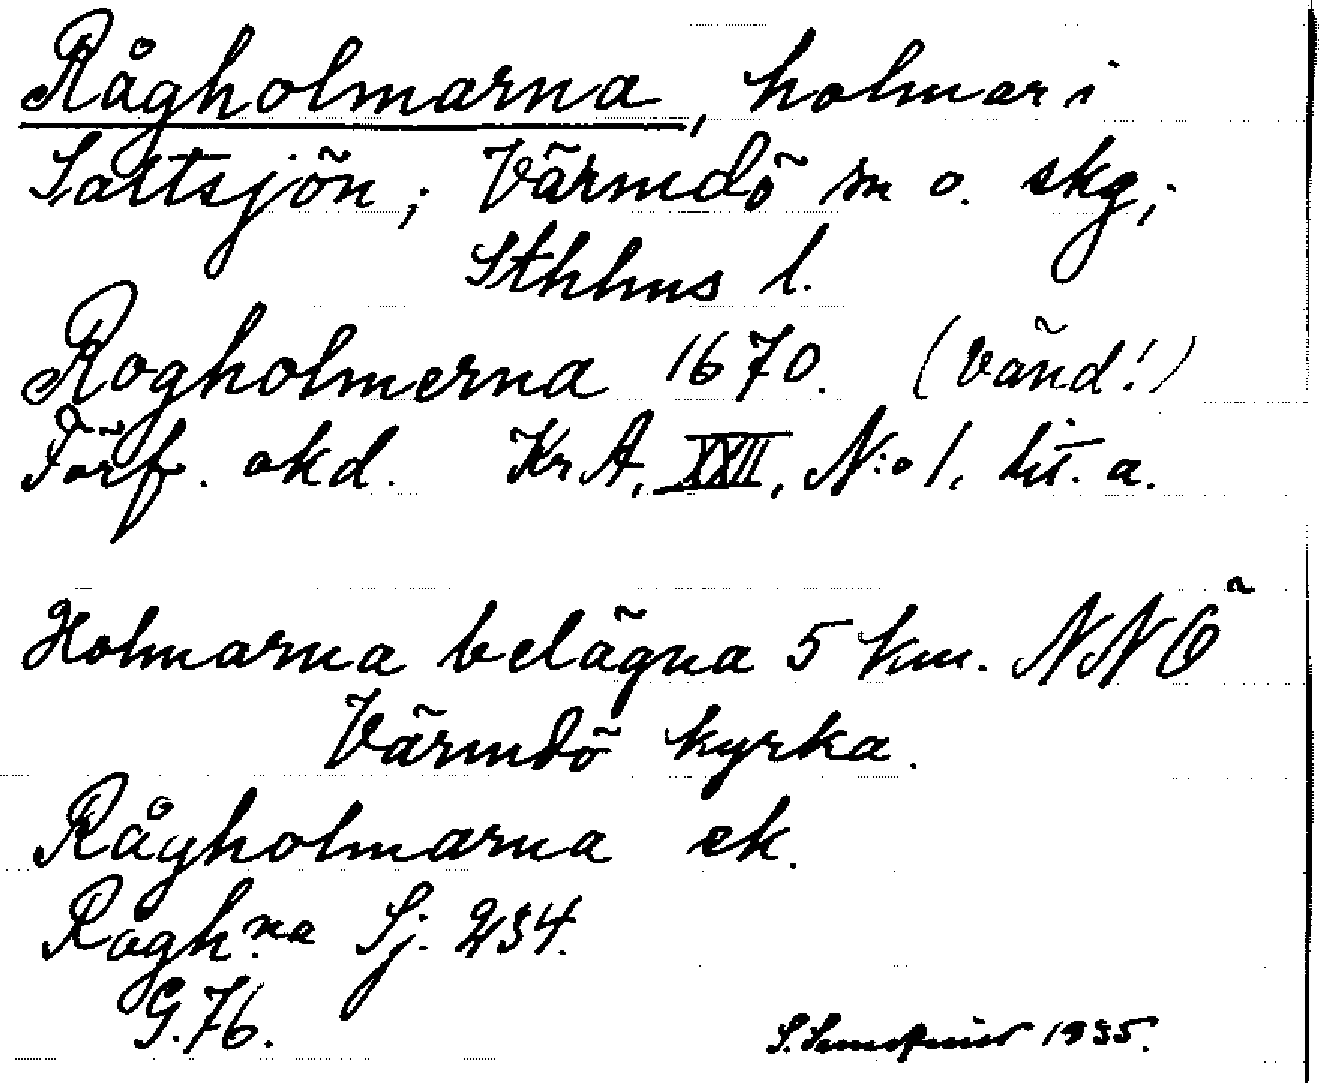 Rågholmarna, holmar i
Saltsjön; Värmdö sn o. skg;
Sthlms l.
Rogholmerna 1670. (Vänd!)
Förf. okd. KrA, XXII, N:o 1, lit. a.
Holmarna belägna 5 km. NNÖ
Värmdö kyrka.
Rågholmarna ek.
Rågh:na Sj. 234.
G.76.
S. 1935.